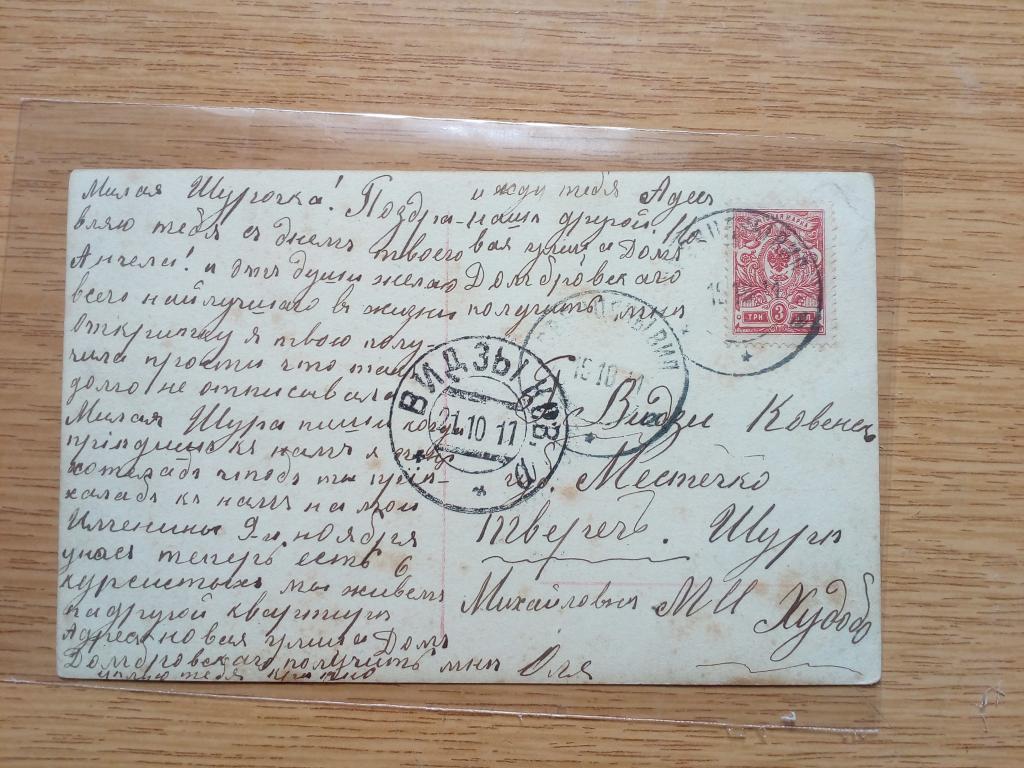 Милая Шурочка! Поздра-
вляю тебя съ днемъ твоего
Ангела! и отъ души желаю
всего найлучшаго въ жизни
Открытку я твою полу-
чила прости что так
долго не отписывала
Милая Шура пиши когда
приедишь къ намъ я
хотелабъ чтобъ ты прие-
халабъ къ намъ на мои
Именины 9-и ноября
унасъ теперь есть 6
курсистыхъ мы живемъ
на другой квартиры
Адрес новая улица Домъ
Домбровскаго получить мнѣ
целую тебя крепко
и жду тебя Адес
нашъ другой 11
вая улица Домъ
Домбровскаго
получить мнѣ
Оля
Видзы Ковенск
губ. Местечко
Тверечъ. Шуры
Михайловны М И Худоб
ВИДЗЫ КОВ.
21.10 11
15 10 11
ТРИ 3 КОП